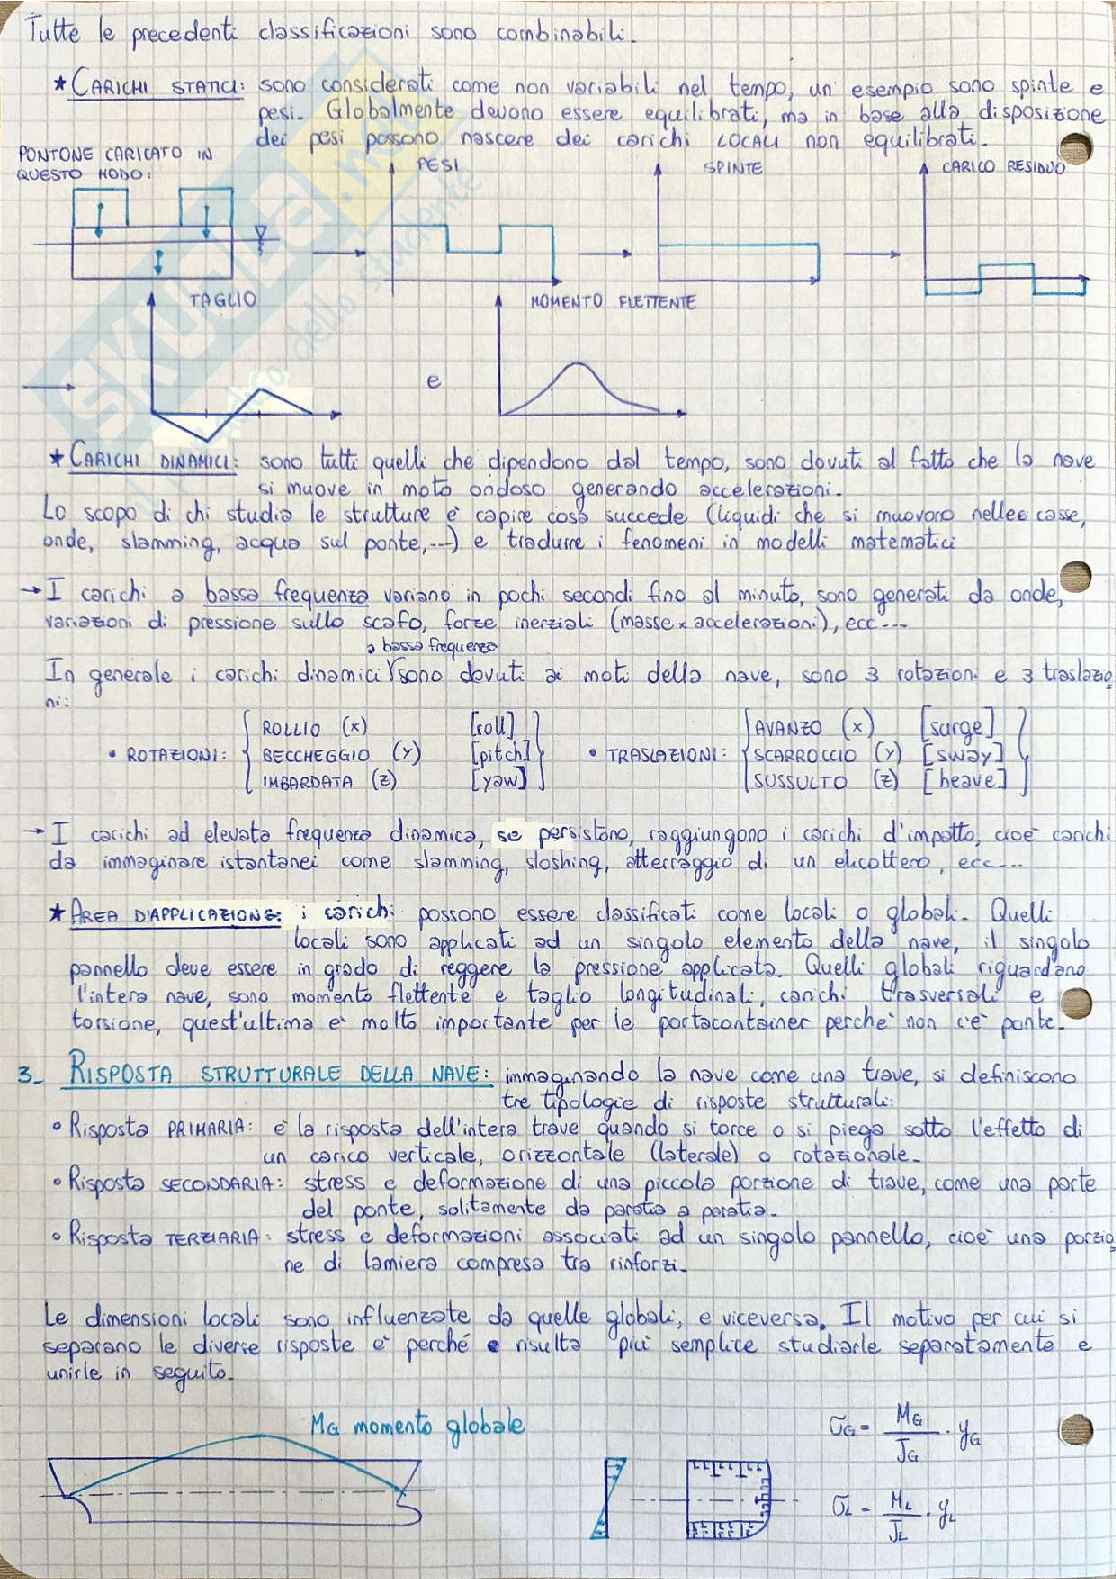 Tutte le precedenti classificazioni sono combinabili.
★ CARICHI STATICI: sono considerati come non variabili nel tempo, un esempio sono spinte e
pesi. Globalmente devono essere equilibrati, ma in base alla disposizione
dei pesi possono nascere dei carichi LOCALI non equilibrati.
PONTONE CARICATO IN
QUESTO MODO:
PESI
SPINTE
CARICO RESIDUO
TAGLIO
MOMENTO FLETTENTE
e
★ CARICHI DINAMICI: sono tutti quelli che dipendono dal tempo, sono dovuti al fatto che la nave
si muove in moto ondoso generando accelerazioni.
Lo scopo di chi studia le strutture è capire cosa succede (liquidi che si muovono nellee casse,
onde, slamming, acqua sul ponte,...) e tradurre i fenomeni in modelli matematici
→ I carichi a bassa frequenza variano in pochi secondi fino al minuto, sono generati da onde,
variazioni di pressione sullo scafo, forze inerziali (masse x accelerazioni), ecc...
a bassa frequenza
In generale i carichi dinamici sono dovuti ai moti della nave, sono 3 rotazioni e 3 traslazio
ni:
• ROTAZIONI: ROLLIO (x) [roll]
BECCHEGGIO (Y) [pitch]
IMBARDATA (Z) [yaw]
• TRASLAZIONI: AVANZO (X) [surge]
SCARROCCIO (Y) [sway]
SUSSULTO (Z) [heave]
→ I carichi ad elevata frequenza dinamica, se persistono, raggiungono i carichi d'impatto, cioè carichi
da immaginare istantanei come slamming, sloshing, atterraggio di un elicottero, ecc...
★ AREA D'APPLICAZIONE: i carichi possono essere classificati come locali o globali. Quelli
locali sono applicati ad un singolo elemento della nave, il singolo
pannello deve essere in grado di reggere la pressione applicata. Quelli globali riguardano
l'intera nave, sono momento flettente e taglio longitudinali, carichi trasversali e
torsione, quest'ultima è molto importante per le portacontainer perchè non c'è ponte.
3_ RISPOSTA STRUTTURALE DELLA NAVE: immaginando la nave come una trave, si definiscono
tre tipologie di risposte strutturali:
• Risposta PRIMARIA: è la risposta dell'intera trave quando si torce o si piega sotto l'effetto di
un carico verticale, orizzontale (laterale) o rotazionale.
• Risposta SECONDARIA: stress e deformazione di una piccola porzione di trave, come una parte
del ponte, solitamente da paratia a paratia.
• Risposta TERZIARIA: stress e deformazioni associati ad un singolo pannello, cioè una porzio
ne di lamiera compresa tra rinforzi.
Le dimensioni locali sono influenzate da quelle globali, e viceversa. Il motivo per cui si
separano le diverse risposte è perché risulta più semplice studiarle separatamente e
unirle in seguito.
MG momento globale
σG = MG/JG · yG
σL = ML/JL · yL